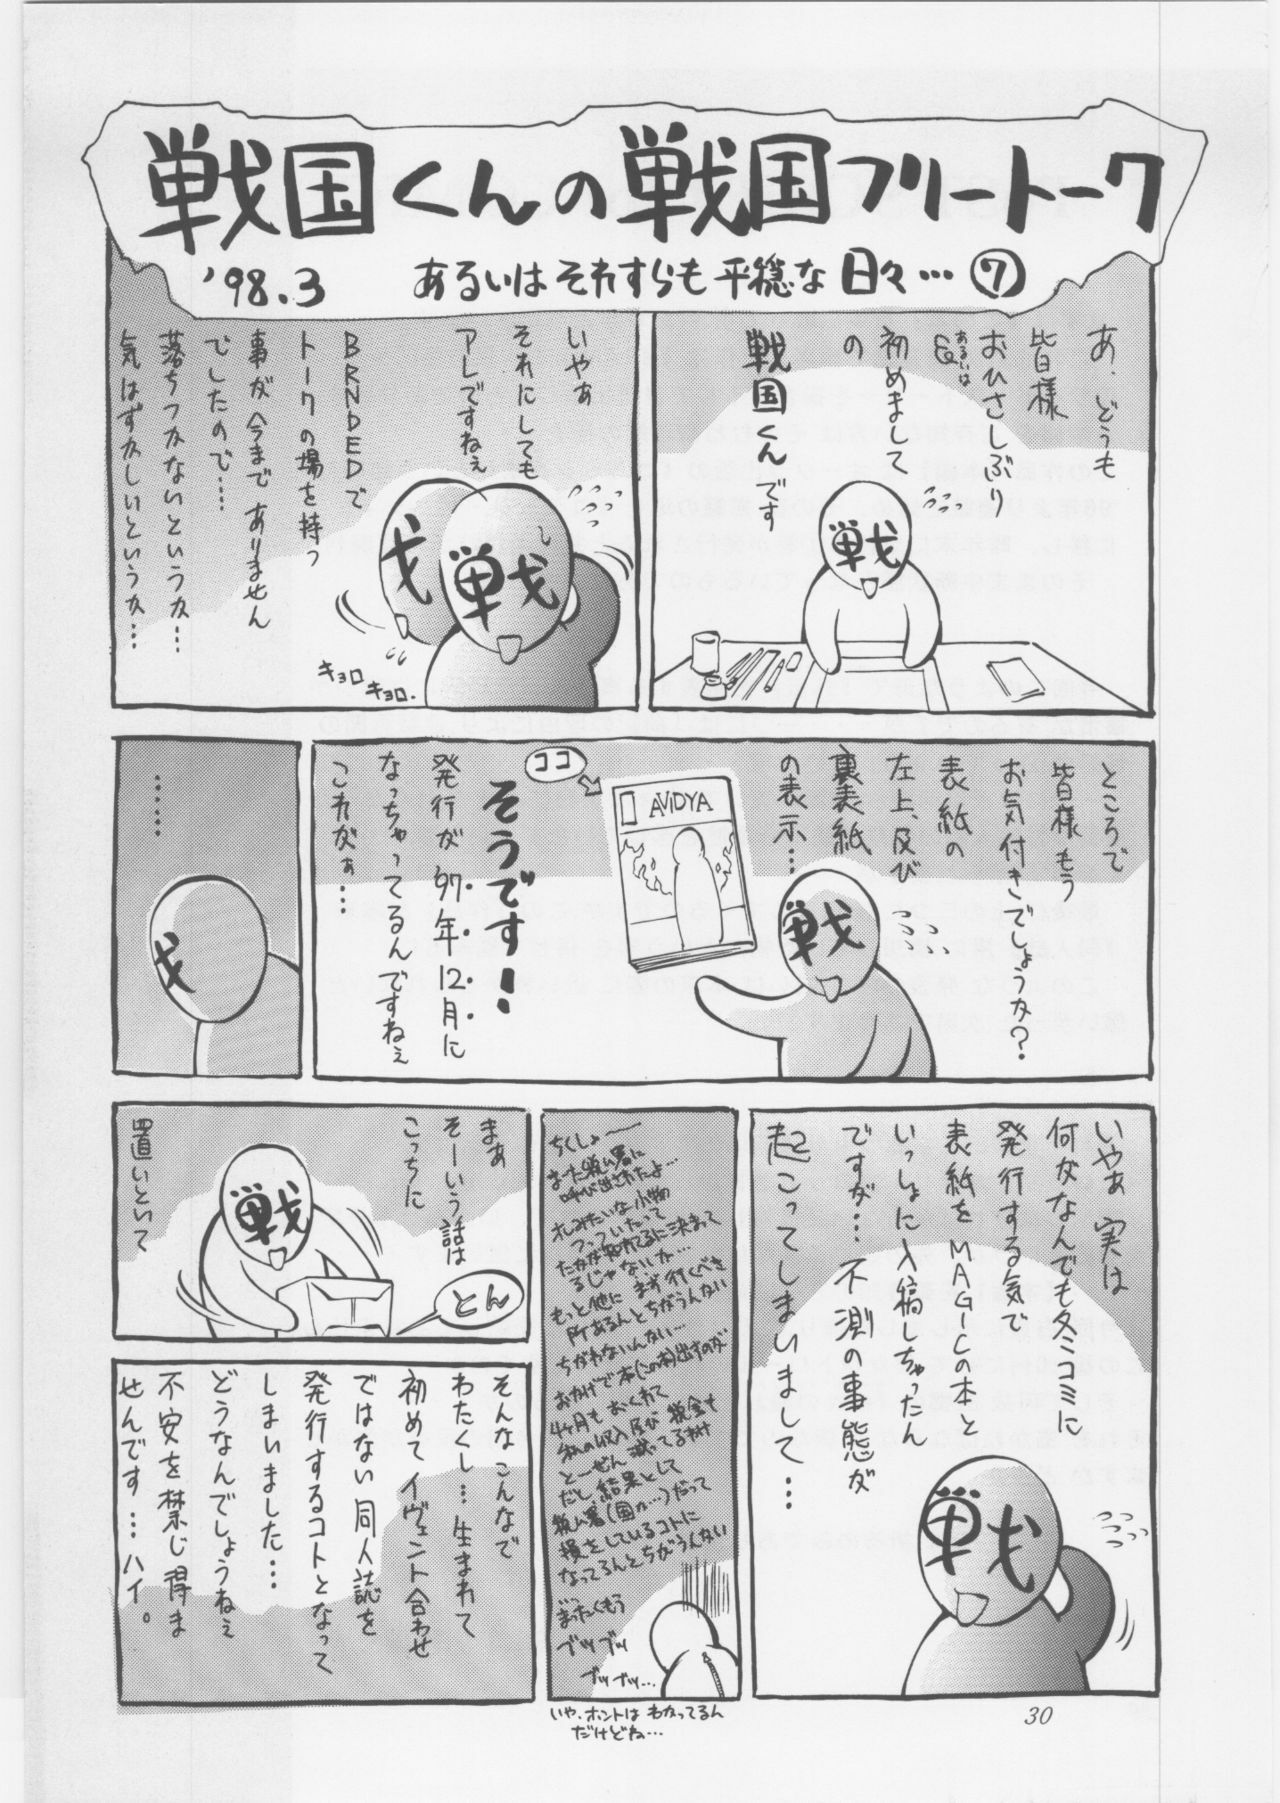 戦国くんの戦国フリートーク
'98.3
あるいはそれすらも平穏な日々…⑦
あ、どうも
皆様
おひさしぶり
あるいは
初めまして
の
戦国くんです
戦
いやぁ
それにしても
アレですねぇ
BRNDEDで
トークの場を持つ
事が今までありません
でしたので…
落ちつかないというか…
気はずかしいというか…
戦
キョロ
キョロ.
ところで
皆様もう
お気付きでしょうか?
表紙の
左上、及び
裏表紙
の表示…
戦
AViDYA
ココ
そうです!
発行が'97年12月に
なっちゃってるんですねぇ
これがぁ…
……
いやぁ 実は
何がなんでも冬コミに
発行する気で
表紙をMAGICの本と
いっしょに入稿しちゃったん
ですが…不測の事態が
起こってしまいまして…
戦
ちくしょー
また税ム署に
呼び出されたよ…
オレみたいな小物
つっついたって
たかが知れてるに決まって
るじゃないか…
もっと他にまず行くべき
所あるんとちがうんかい
ちがわないんかい…
おかげで本(この本)出すのが
4ヶ月もおくれて
私の収入及び税金も
とーぜん減ってるわけ
だし結果として
税ム署(国か…)だって
損をしているコトに
なってるんとちがうんかい
…
まったくもう
ブツブツ
ブツブツ…
いや、ホントはわかってるん
だけどね…
まぁ
そーいう話は
こっちに
置いといて
戦
とん
そんなこんなで
わたくし…生まれて
初めてイヴェント合わせ
ではない同人誌を
発行するコトとなって
しまいました…
どうなんでしょうねぇ
不安を禁じ得ま
せんです…ハイ。
30